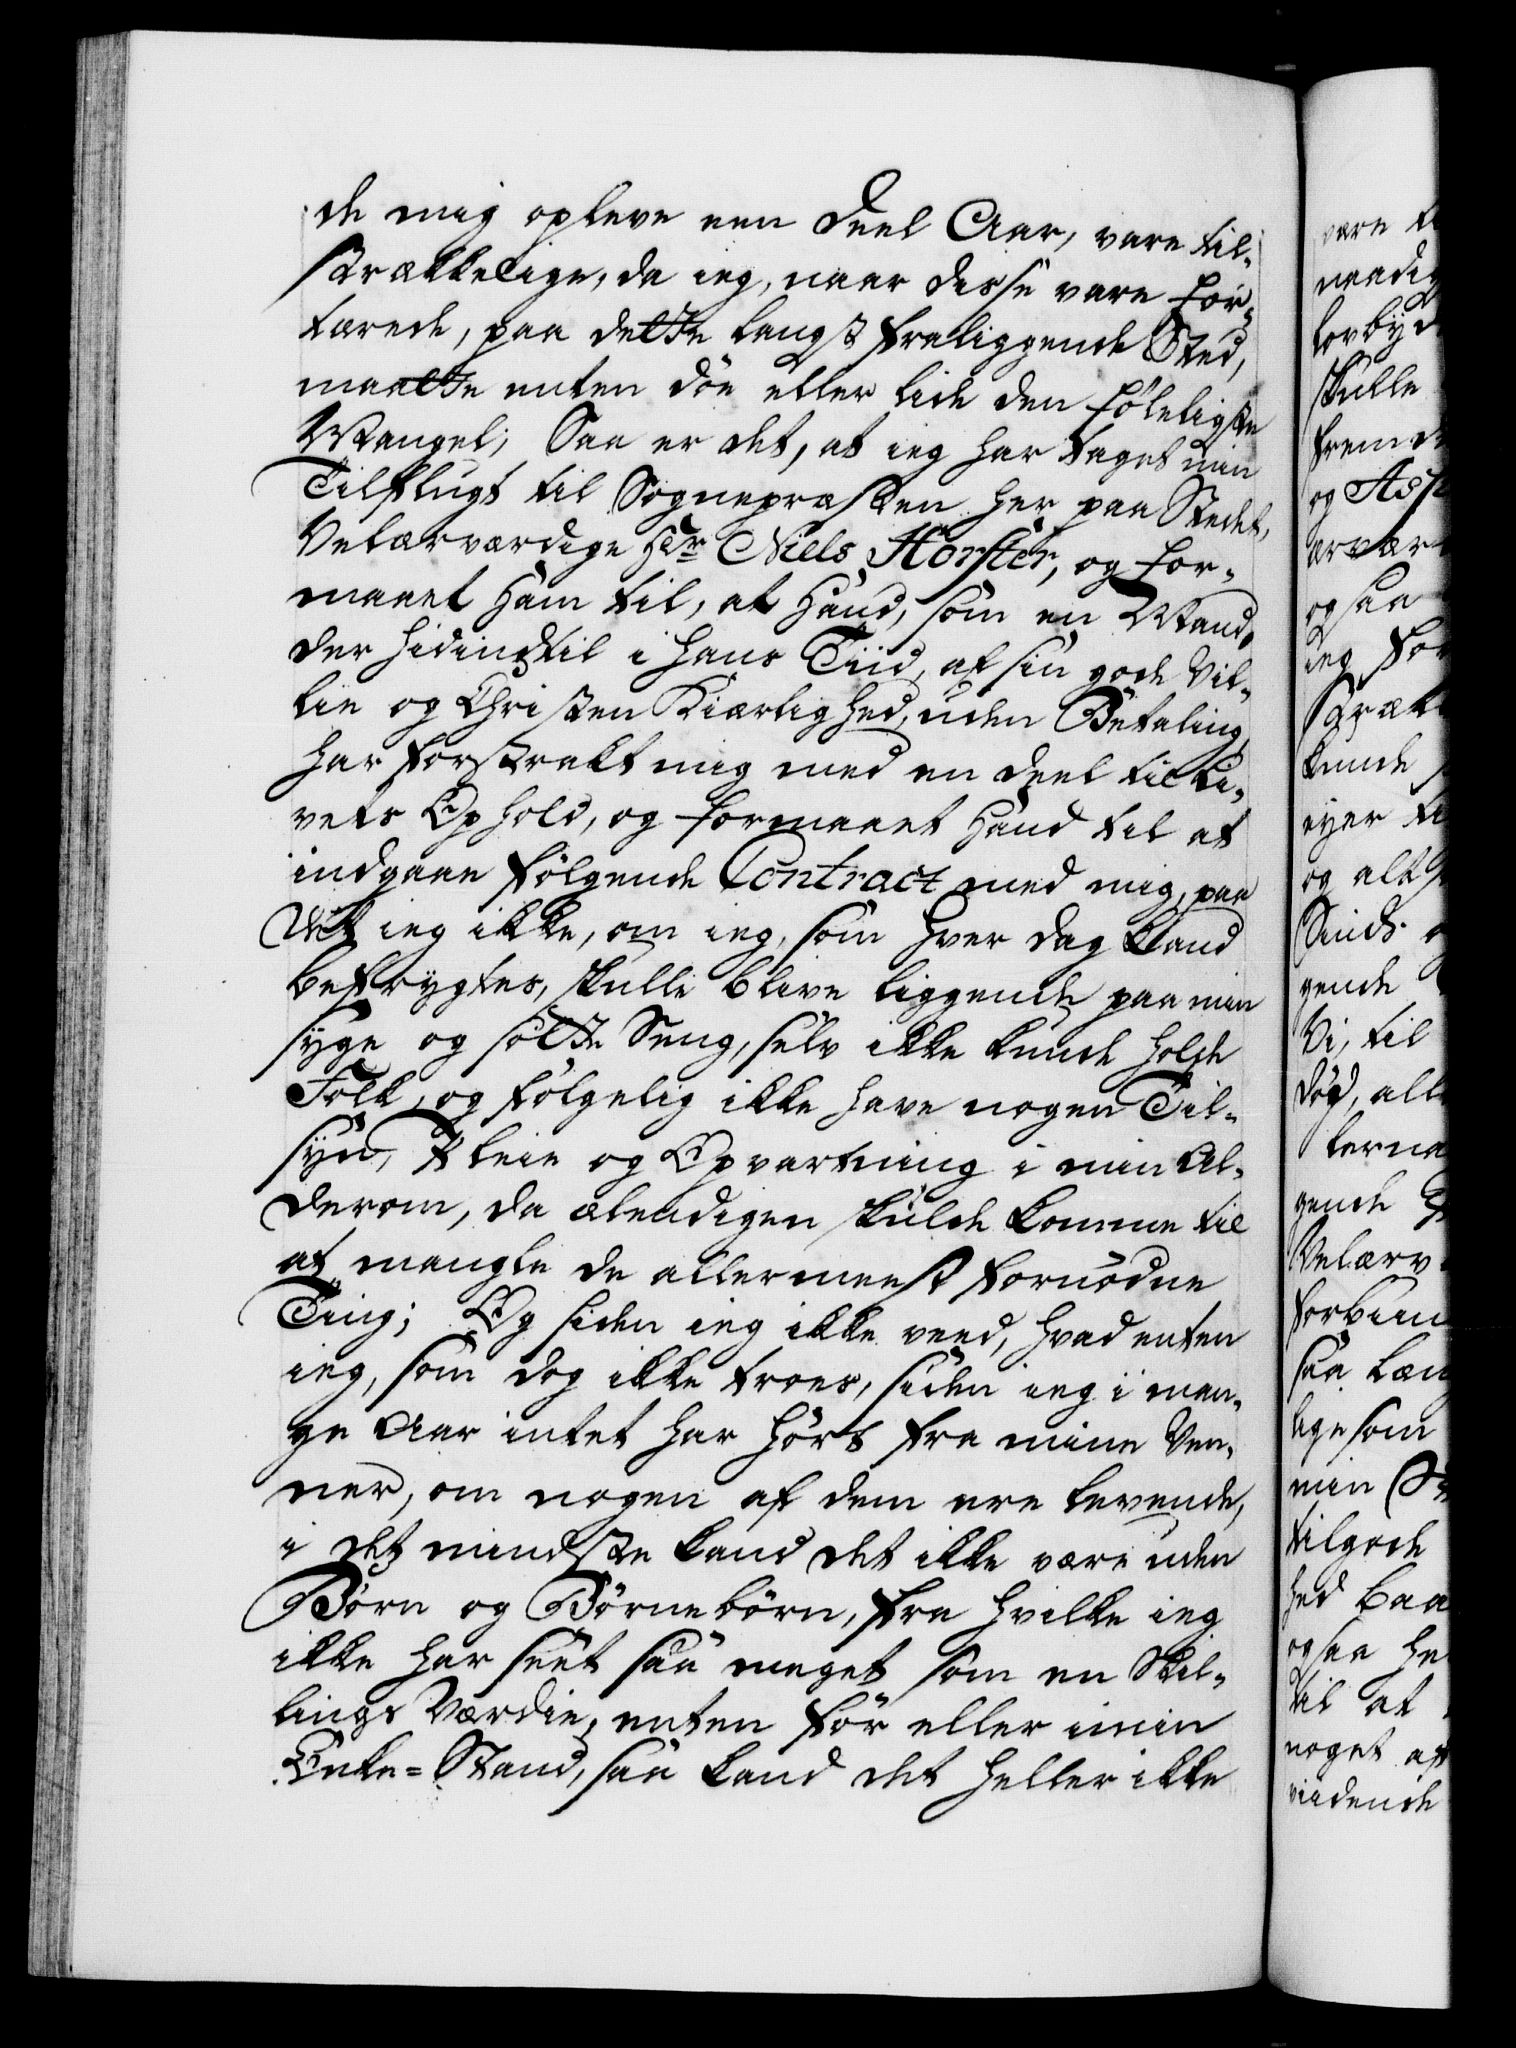 de mig opleve een deel Aar, vare til-
strækkelige, da ieg, naar disse vare for-
tærede, paa dette langst fraliggende Sted,
maatte enten döe eller lide denföleligste
Mangel; Saa er det, at ieg har taget min
Tilflugt til Sognepræsten her paa Stedet,
Velærværdige Hr Niels Hörster, og for-
maaet Ham til, at Hand, som en Mand,
der hidindtil i hans Tiid, af sin gode Vil-
lie og Christen Kiærlighed, uden Betaling,
har forstrakt mig med en deel til Li-
vets Ophold, og formaaet Hand til at
indgaae fölgende Contract med mig, paa
det ieg ikke, om ieg, som hver dag kand
befrygtes, skulle blive liggende paa min
syge og sotte Seng, selv ikke kunde holde
Folk, og fölgelig ikke have nogen Til-
syn, Pleie og Opvartning i min Al-
derom, da ælendigen skulde komme til
at mangle de allermeest fornödne
Ting; Og siden ieg ikke veed, hvad enten
ieg, som dog ikke troes, siden ieg i man-
ge Aar intet har hört fra mine Ven-
ner, om nogen af dem ere levende,
i det mindste kand det ikke være uden
Börn og Börnebörn, fra hvilke ieg
ikke har seet saa meget som en Skil-
lings Værdie, enten för eller i min
Enke-Stand, saa kand det heller ikke
være
naadig
lovbyd
skulle
fremd
og Ass
ærvær
og saa
ieg for
stræk
kunde
eyer
og alt
Sinds
gende
Vi, til
död, all
gende
Velærv
forbun
saa læn
lige som
min
tilgode
hed baa
og saa he
til at
noget af
viidende